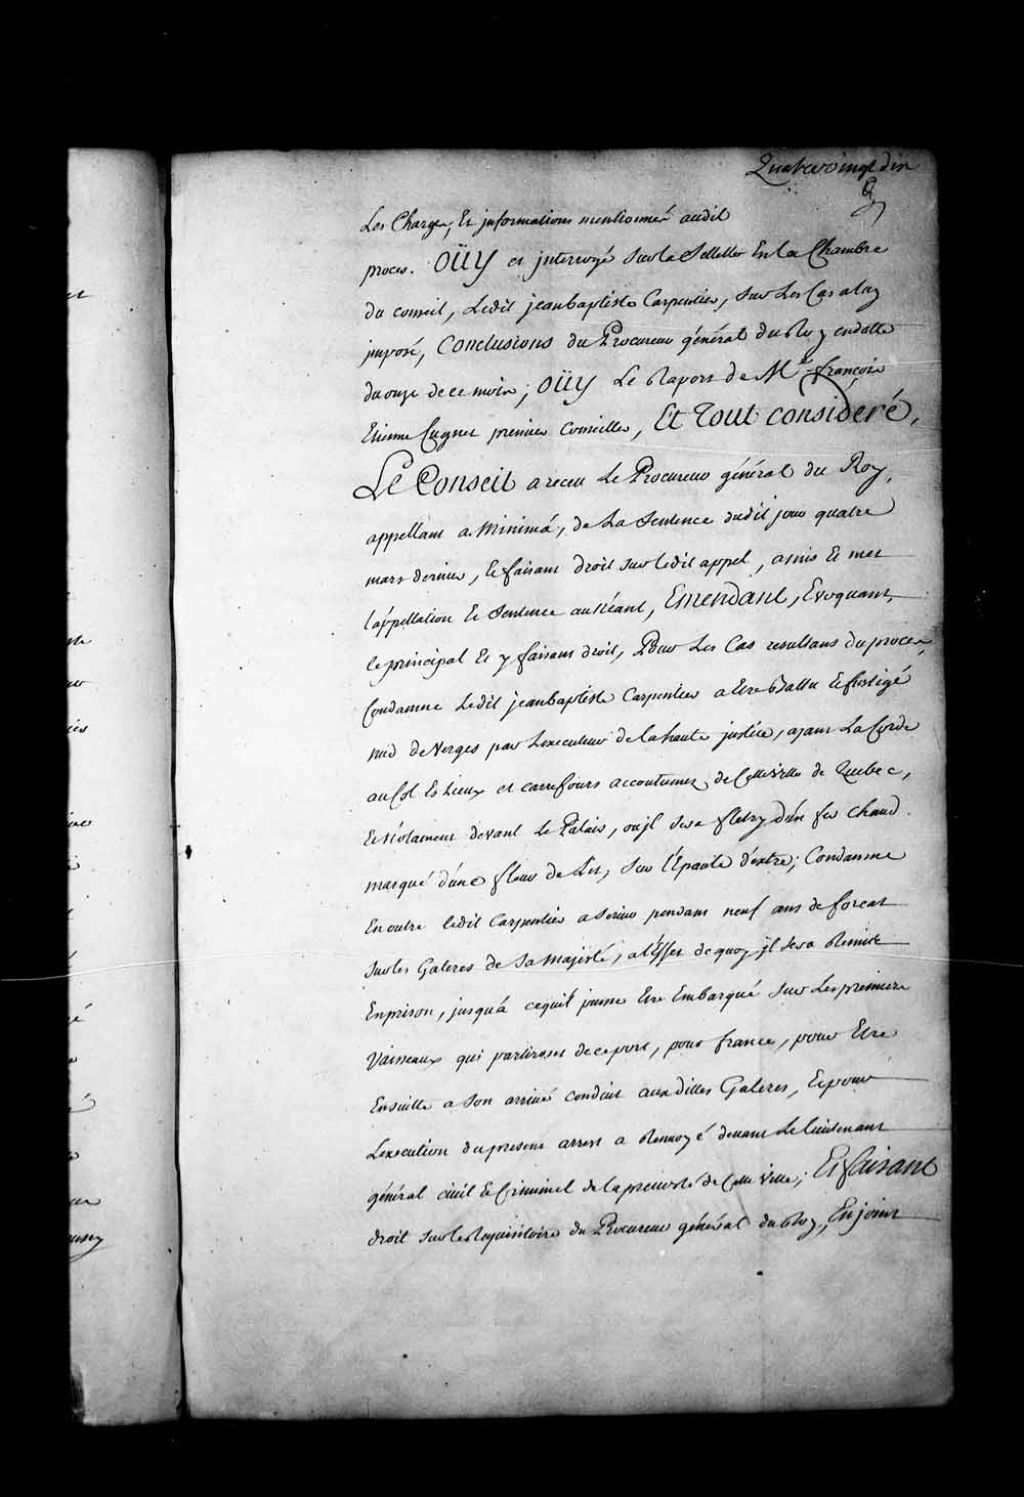 Quatrevingt dix
Les Charges, Et jnformations mentionnéé audit
proces. OÜY et jnterrogé sur la Sellette En la Chambre
du conseil, Ledit jean baptiste Carpentier, sur Les Cas a luy
jmposé, Conclusions du Procureur général du Roy en datte
du onze de ce mois; OÜY Le Raport de Me. françois
Etienne Cugnet premier Conseiller, Et Tout considéré,
Le Conseil a receu Le Procureur général du Roy,
appellant a Minimá, de La Sentence dudit jour quatre
mars dernier, Et faisant droit sur ledit appel, a mis Et met
l'appellation Et Sentence au Néant, Emendant, Evoquant,
le principal Et y faisant droit, Pour Les Cas resultans du proces,
Condamne Ledit jean baptiste Carpentier a Etre Battu Et fustigé
nud de Verges par Lexecuteur de la haute justice, ayant La Corde
au Col Es Lieux et carrefours accoutumez de Cette Ville de Quebec,
Et Nótament devant Le Palais, ou jl sera fletry d'ún fer chaud
marqué d'úne fleur de Lis, sur l'Epaule d'extre; Condamne
En outre ledit Carpentier a Servir pendant neuf ans de forcat
sur les Galeres de Sa Majesté, a l'Effet de quoy jl sera Remis
En prison, jusqu'á cequil puisse Etre Embarqué sur Les premiers
Vaisseaux qui partiront de ce port, pour france, pour Etre
Ensuitte a Son arrivé conduit aux dittes Galeres, Et pour
Lexecution du present arrest a Renvoyé devant Le Lieutenant
général civil Et Criminel de la prevosté de Cette Ville; Et faisant
droit sur le Requisitoire du Procureur général du Roy, Enjoint